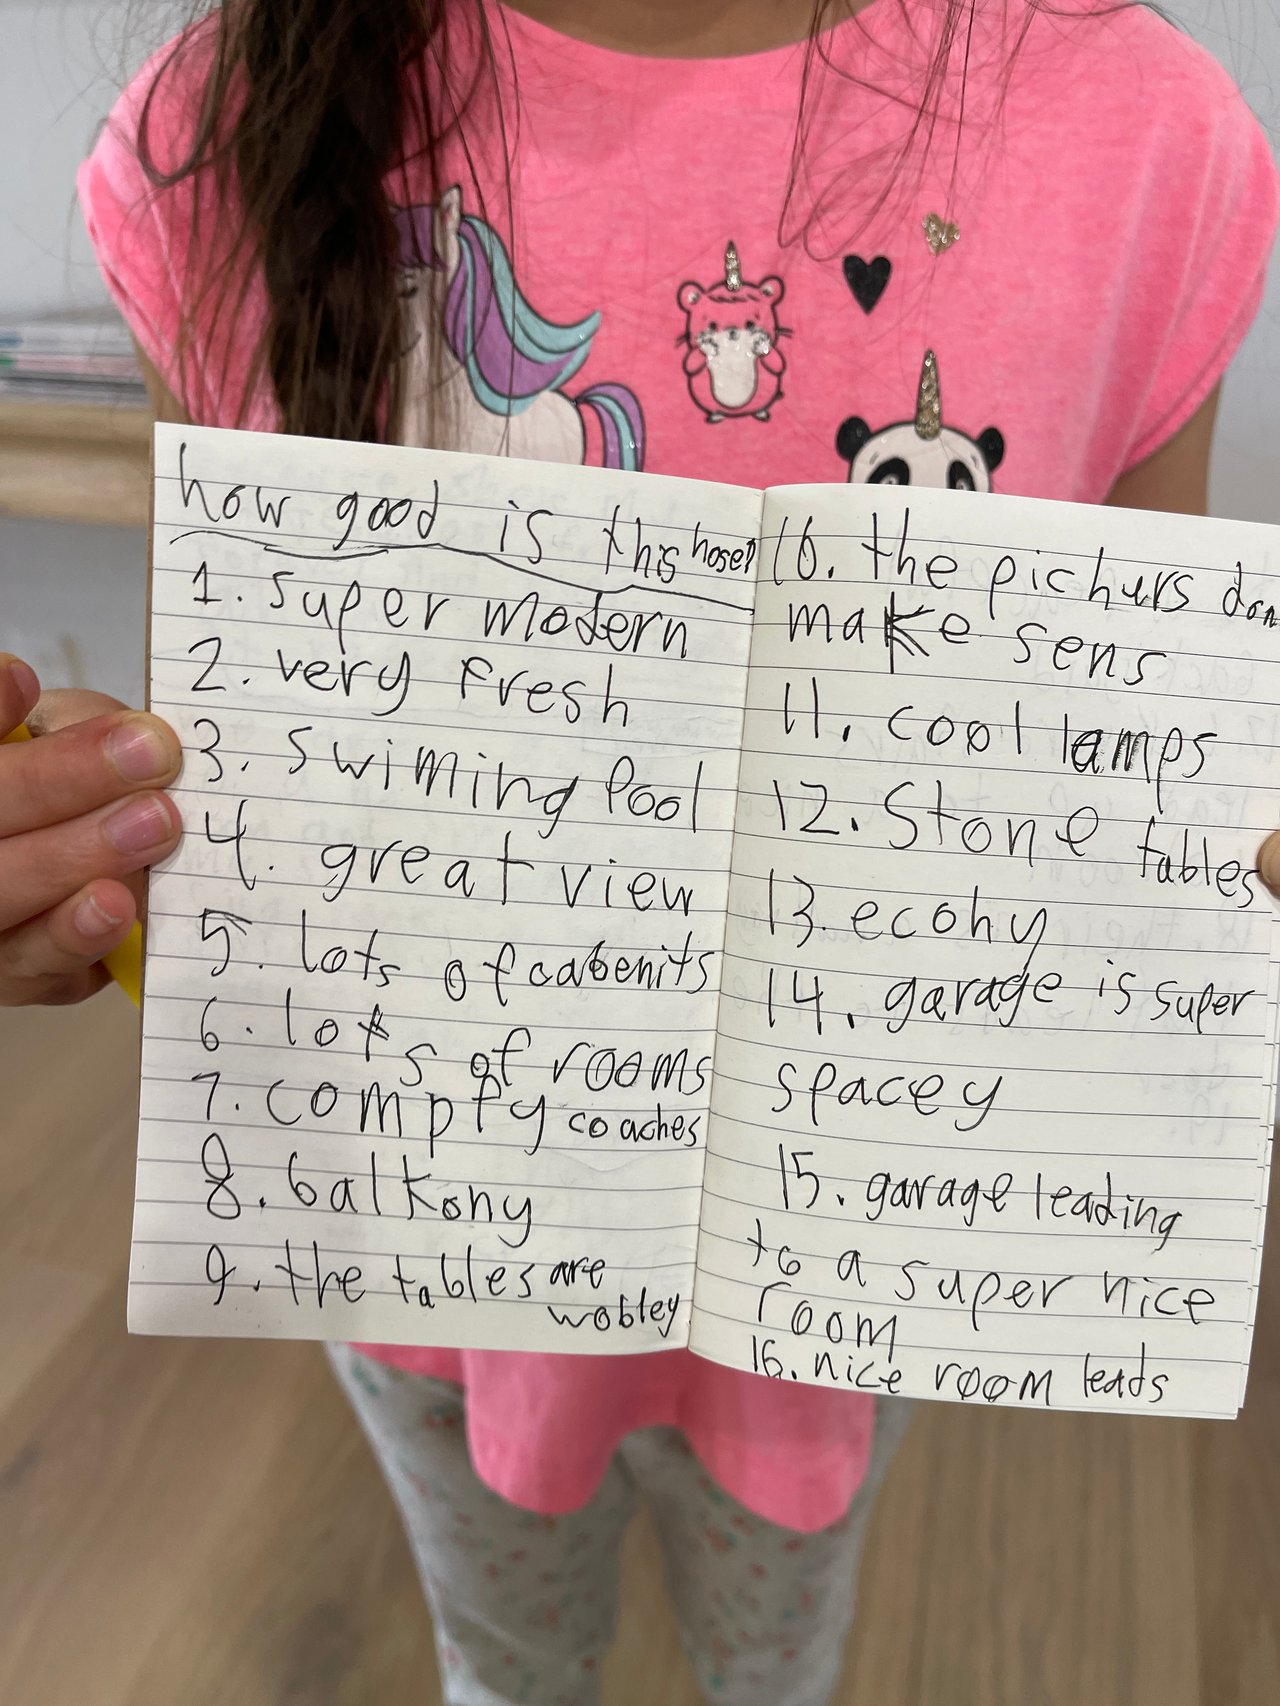 how good is this hose?
1. super modern
2. very fresh
3. swiming Pool
4. great view
5. lots of cabenits
6. lots of rooms
7. compfy coaches
8. balkony
9. the tables are
wobley
10. the pichurs don
make sens
11. cool lamps
12. Stone tables
13. ecohy
14. garage is super
spacey
15. garage leading
to a super nice
room
16. nice room leads